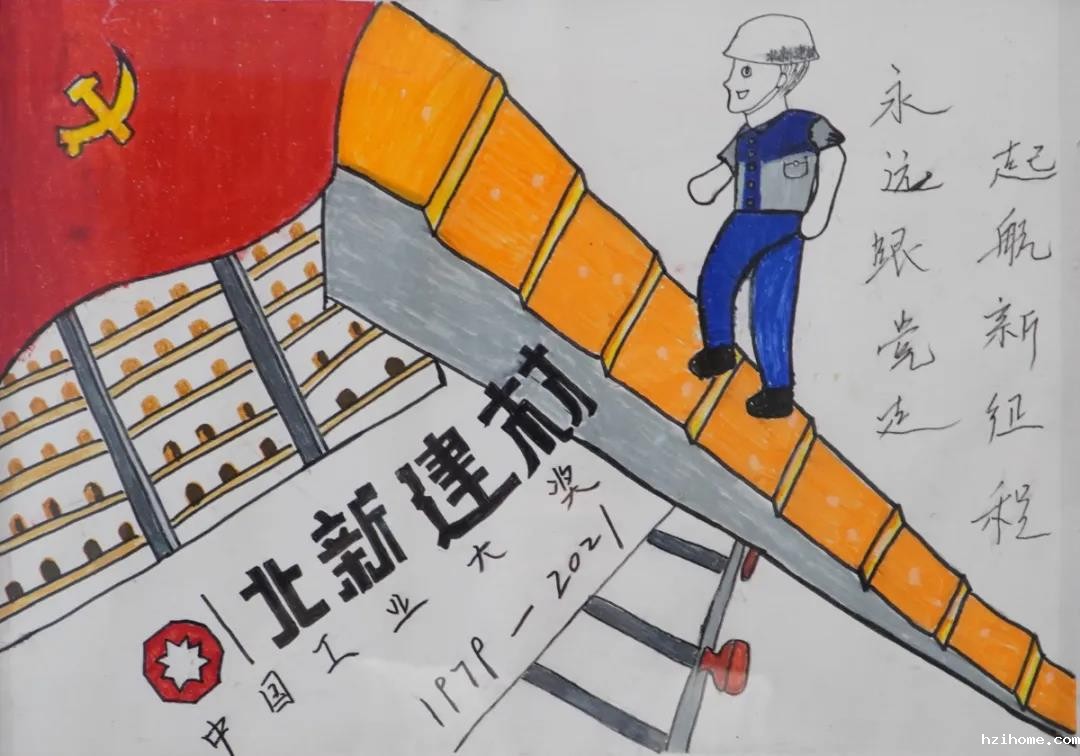 永远跟党走
起航新征程
北新建材
中国工业大奖
1979—2021
hzihome.com